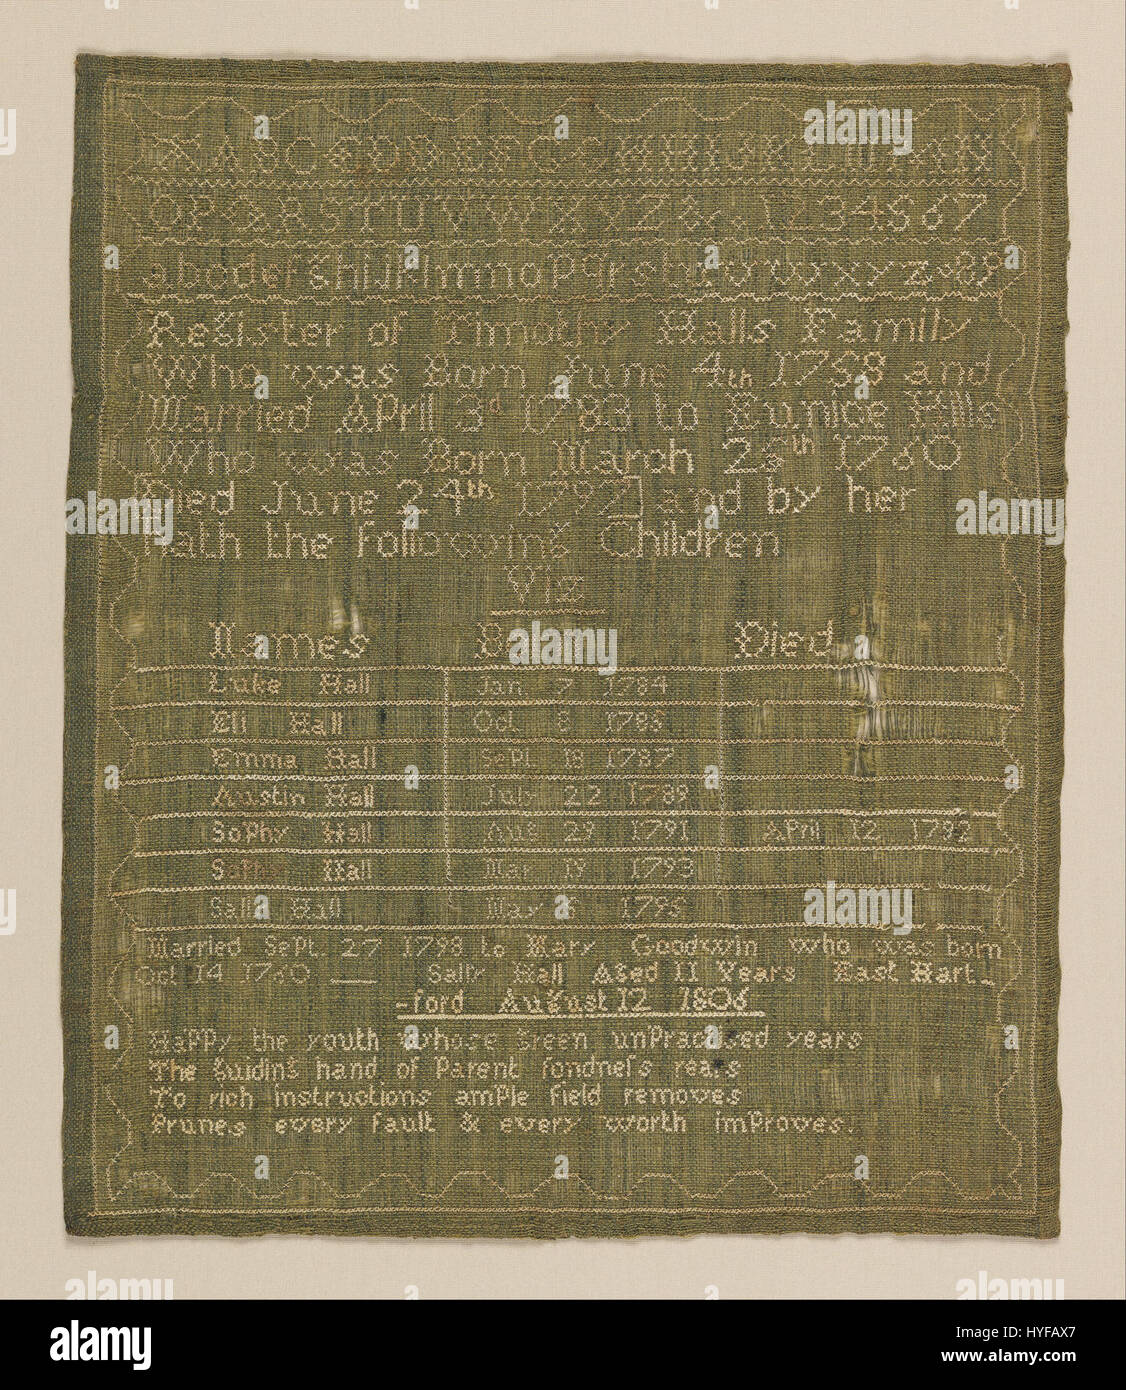 OPQRSTUVWXYZ& 1234567
Register of Timothy Halls Family
Who was Born June 4th 1758 and
Married April 3d 1783 to Eunice Hills
Who was Born March 25th 1760
Died June 24th 1797 and by her
Hath the following Children
Viz
Names Born Died
Luke Hall Jan 7 1784
Eli Hall Oct 8 1785
Emma Hall Sept 18 1787
Austin Hall July 22 1789
Sophy Hall Aug 29 1791 April 12 1792
Sophy Hall Mar 19 1793
Sally Hall May 1795
Married Sept 27 1798 to Mary Goodwin who was born
Oct 14 1760 Sally Hall Aged 11 Years East Hart
-ford August 12 1806
Happy the youth whose green unpractised years
The guiding hand of Parent fondneſs rears
To rich instructions ample field removes
Prunes every fault & every worth improves.
alamy
a
alamy stock photo
HYFAX7
www.alamy.com